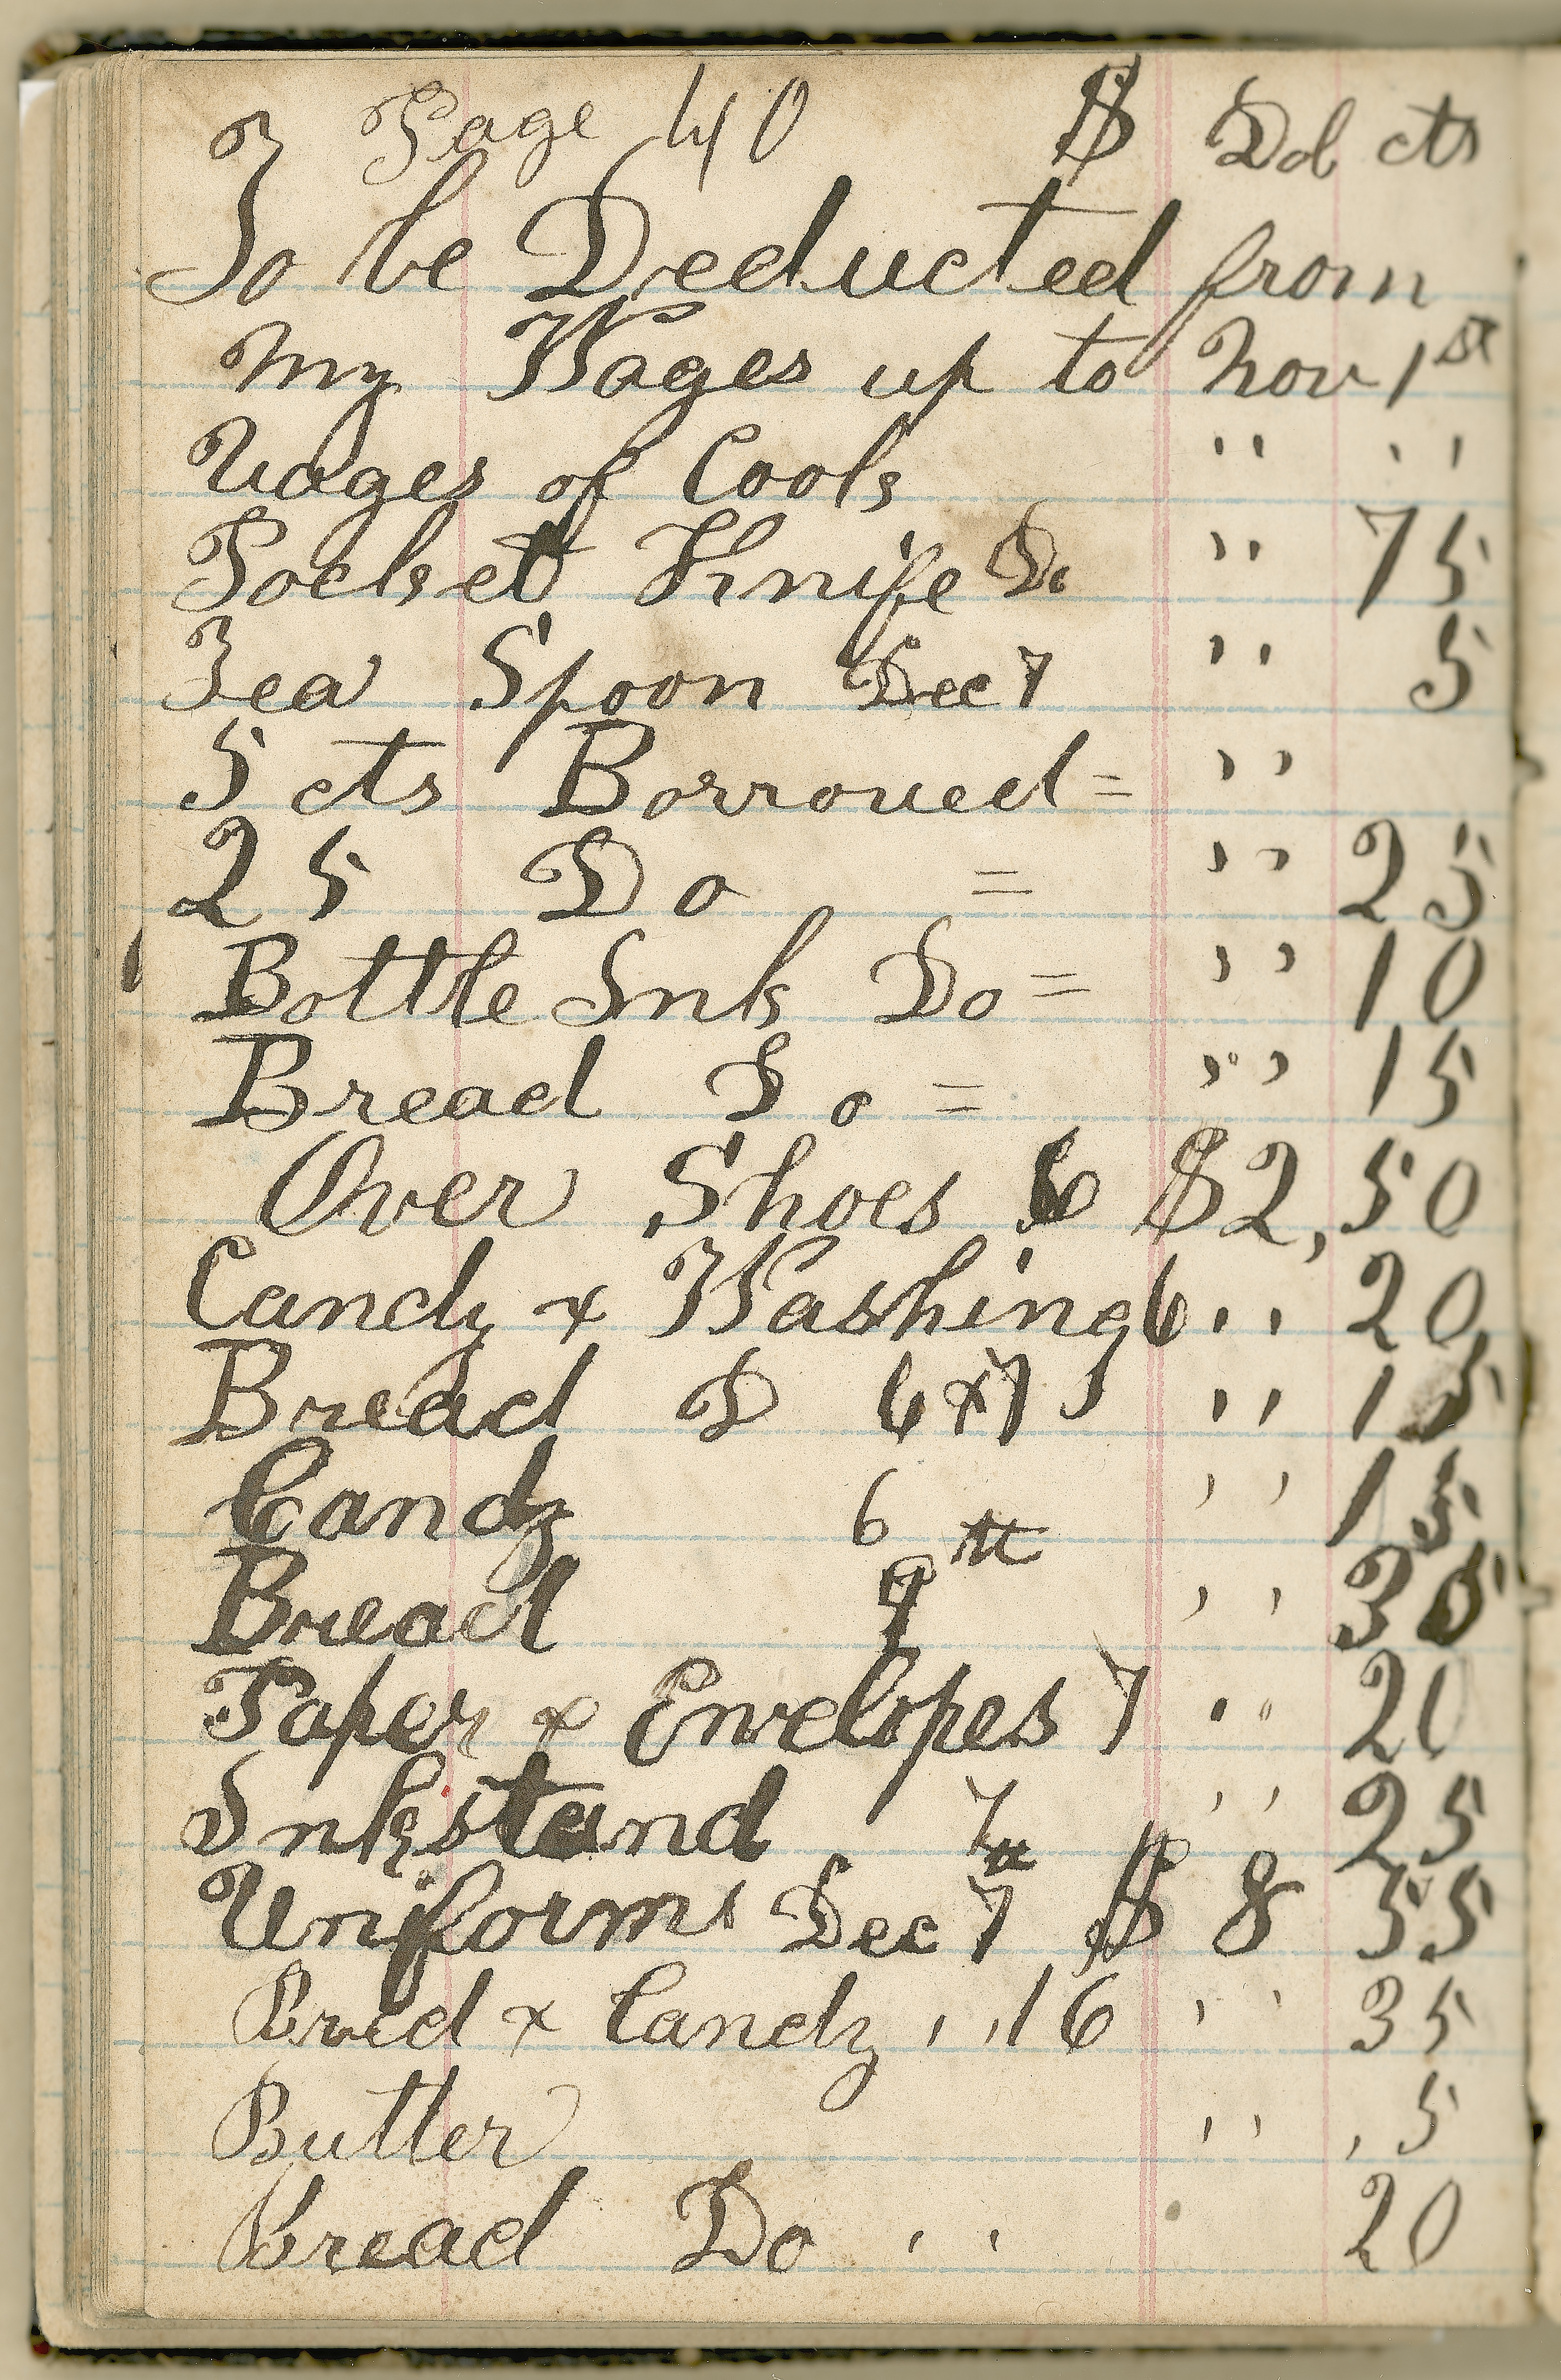 Page 40 $ Dol cts
To be Deducted from
My Wages up to Nov 1st
Wages of Cook " "
Pocket Knife Do " 75
Tea Spoon Dec 7 " 5
5 cts Borrowed = "
25 Do = " 25
Bottle Ink Do = " 10
Bread Do = " 15
Over Shoes 6 $2,50
Candy & Washing 6 " 20
Bread D 6 & 7 " 15
Candy 6 " 15
Bread 9th " 35
Paper & Envelopes 7 " 20
Inkstand 7 " 25
Uniforms Dec 7th $ 8 55
Bred & Candy " 16 " 35
Butter " ,5
Bread Do " 20